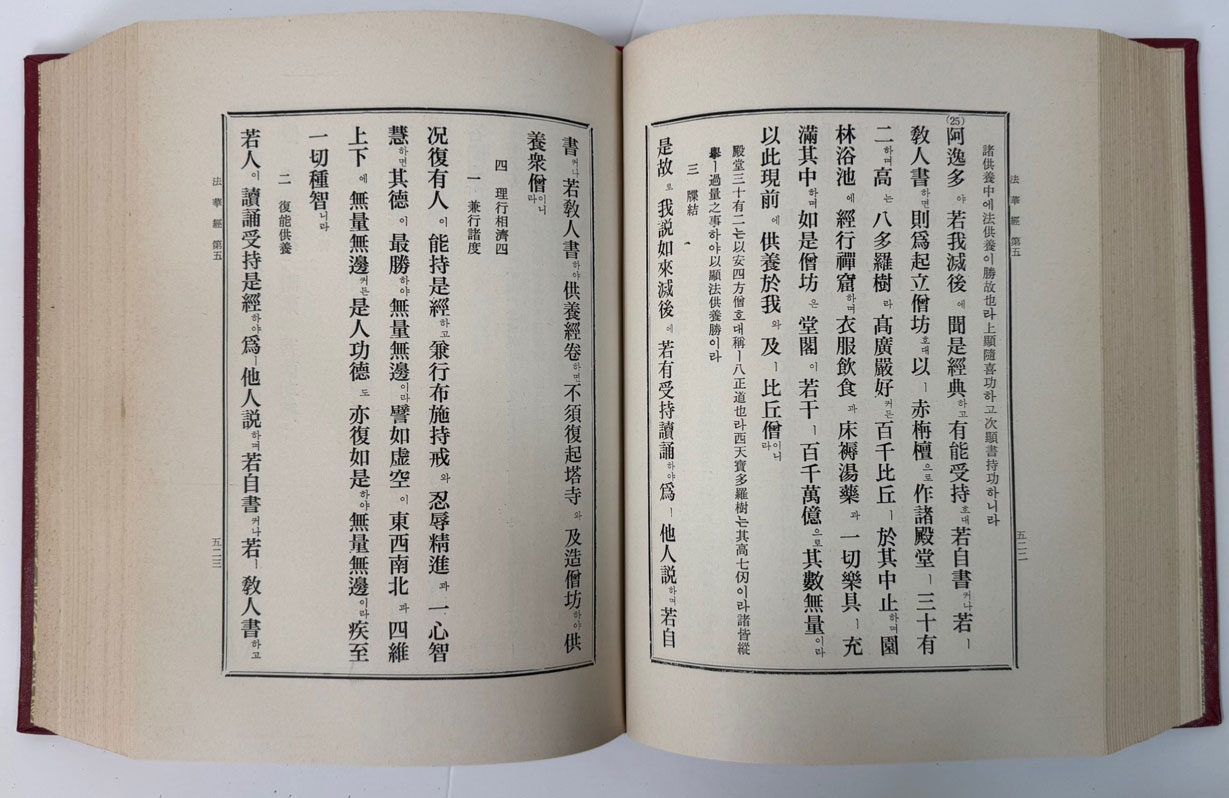 法華經 第五
五二二
諸供養中에法供養이勝故也라上顯隨喜功하고次顯書持功하니라
(25)
阿逸多야 若我滅後에 聞是經典하고有能受持호대若自書커나若ㅣ
敎人書하면則爲起立僧坊호대以ㅣ赤栴檀으로作諸殿堂ㅣ三十有
二하며高는八多羅樹라高廣嚴好커든百千比丘ㅣ於其中止하며園
林浴池에經行禪窟하며衣服飮食과床褥湯藥과一切樂具ㅣ充
滿其中하며如是僧坊은堂閣이若干ㅣ百千萬億으로其數無量이라
以此現前에供養於我와及ㅣ比丘僧이니라
殿堂三十有二는以安四方僧호대稱ㅣ八正道也라西天寶多羅樹는其高七仞이라諸皆縱
擧ㅣ過量之事하야以顯法供養勝이라
三 牒結
是故로我說如來滅後에若有受持讀誦하야爲ㅣ他人說하며若自
書커나若敎人書하야供養經卷하면不須復起塔寺와及造僧坊하야供
養衆僧이니라
四 理行相濟四
一 兼行諸度
况復有人이能持是經하고兼行布施持戒와忍辱精進과一心智
慧하면其德이最勝하야無量無邊이라譬如虛空이東西南北과四維
上下에無量無邊커든是人功德도亦復如是하야無量無邊이라疾至
一切種智니라
二 復能供養
若人이讀誦受持是經하야爲ㅣ他人說하며若自書커나若ㅣ敎人書하고
法華經 第五
五二三